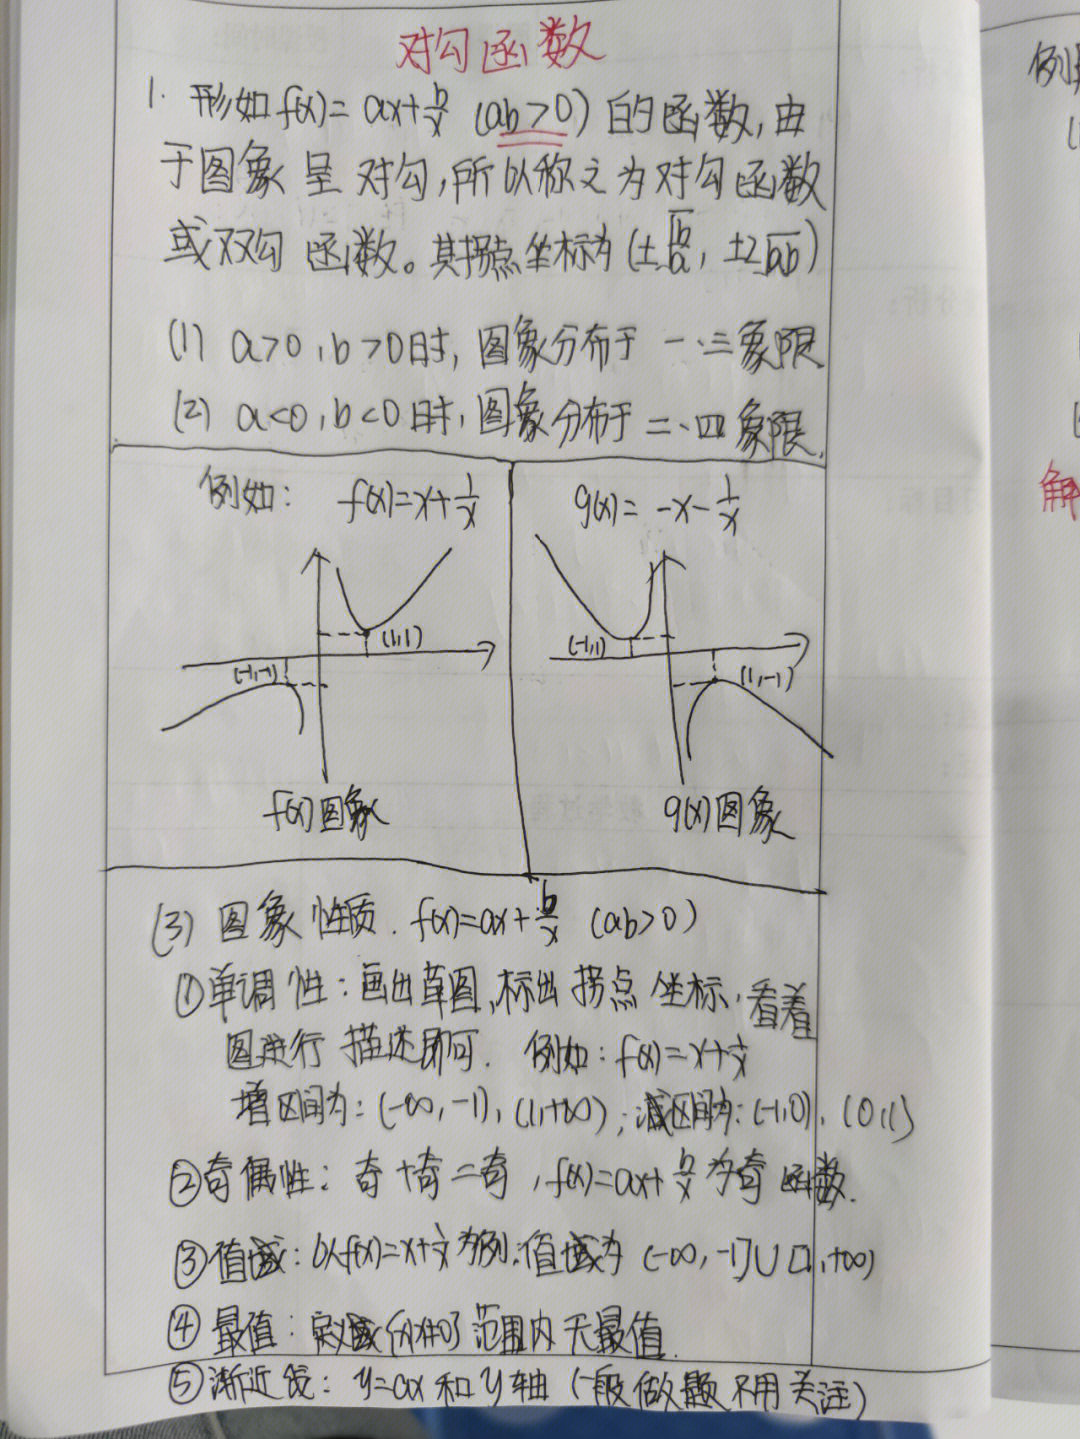 对勾函数
1. 形如 f(x)= ax+b/x (ab>0) 的函数, 由
于图象呈对勾, 所以称之为对勾函数
或双勾函数。其拐点坐标为 (±√(b/a), ±2√(ab))
(1) a>0, b>0时, 图象分布于一、三象限.
(2) a<0, b<0时, 图象分布于二、四象限.
例如: f(x)=x+1/x
g(x)= -x-1/x
(1,1)
(-1,-1)
f(x)图象
(-1,1)
(1,-1)
g(x)图象
(3) 图象性质. f(x)=ax+b/x (ab>0)
①单调性: 画出草图, 标出拐点坐标, 看着
图进行描述即可. 例如: f(x)=x+1/x
增区间为: (-∞,-1), (1,+∞); 减区间为: (-1,0), (0,1)
②奇偶性: 奇+奇=奇, f(x)=ax+b/x为奇函数.
③值域: 以f(x)=x+1/x为例: 值域为 (-∞,-1]∪[1,+∞)
④最值: 定义域{x|x≠0}范围内无最值.
⑤渐近线: y=ax 和 y轴 (一般做题不用关注)
例
解